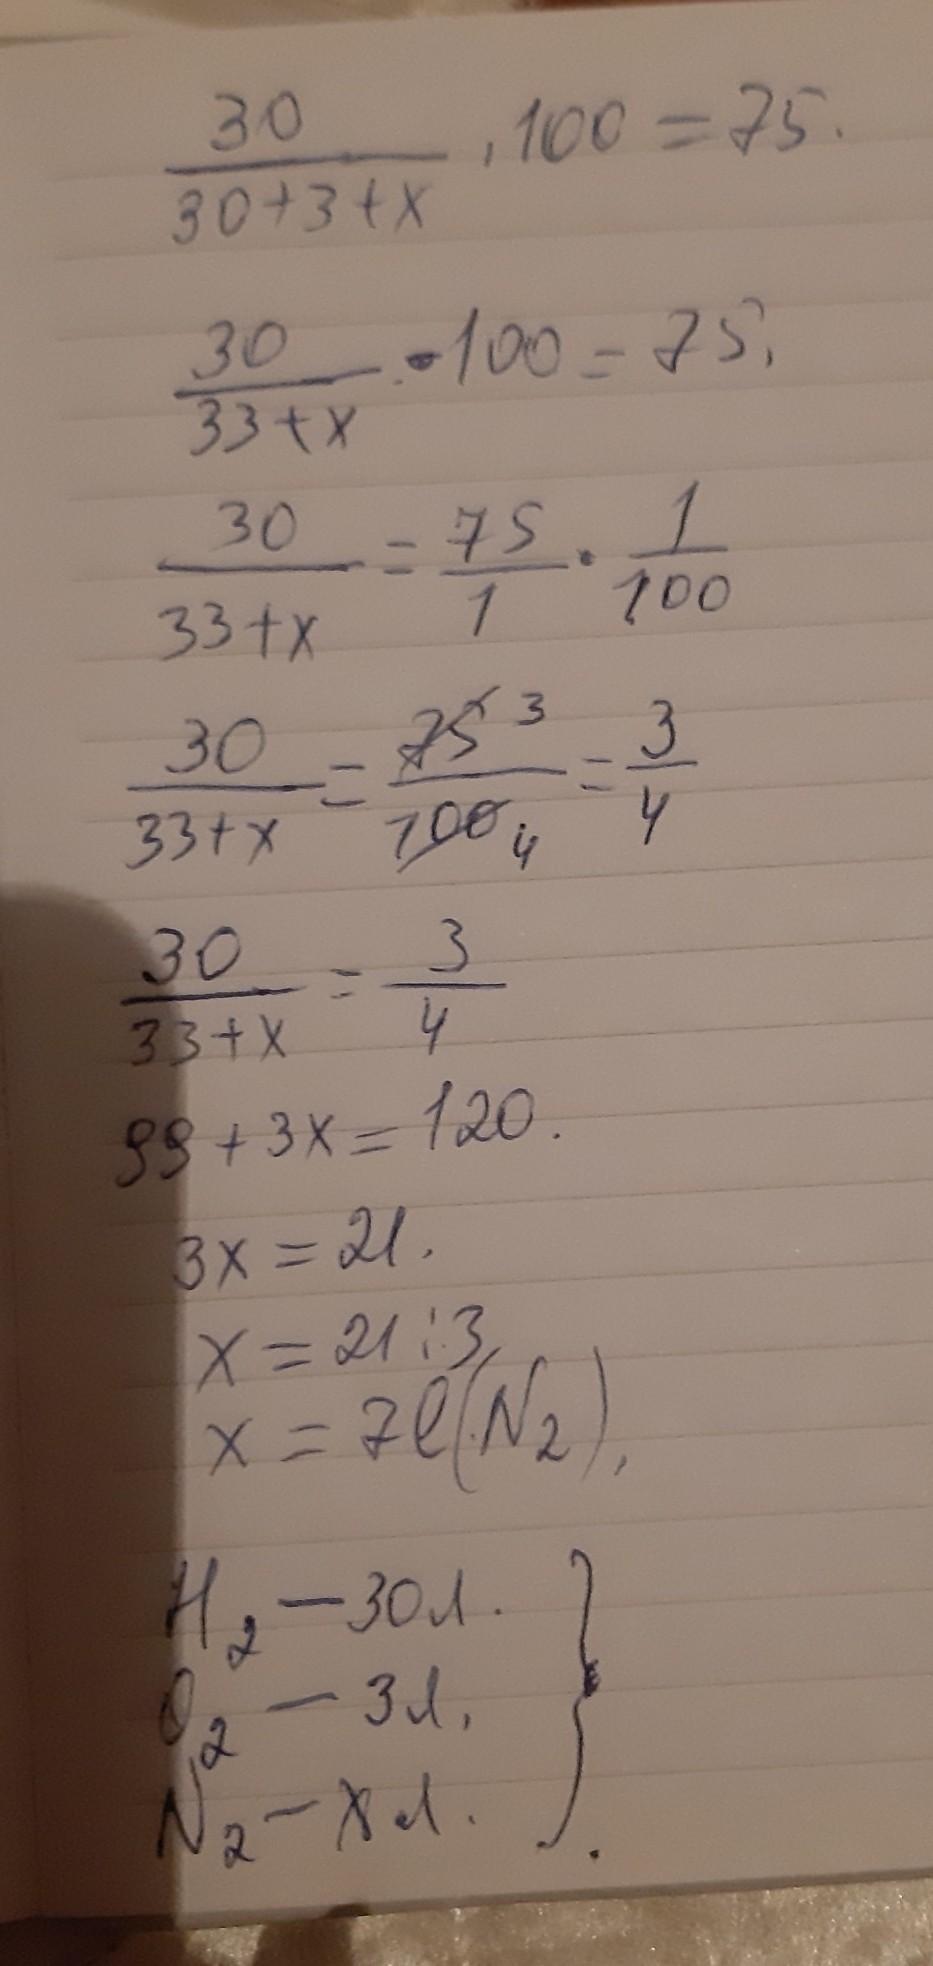 30/(30+3+x) · 100 = 75.
30/(33+x) · 100 = 75.
30/(33+x) = 75/1 · 1/100
30/(33+x) = 75 3/100 4 = 3/4
30/(33+x) = 3/4
99 + 3x = 120.
3x = 21.
x = 21 : 3
x = 7 l (N₂).
H₂ — 30 л.
O₂ — 3 л.
N₂ — x л.